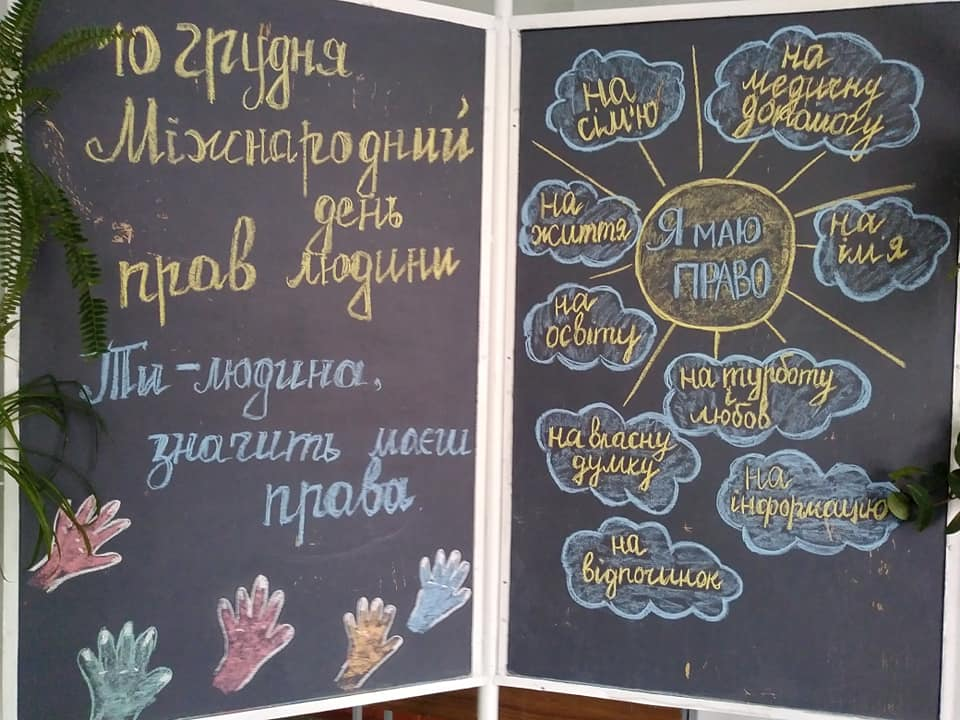 10 грудня
Міжнародний
день
прав людини
Ти-людина,
значить маєш
права
Я МАЮ
ПРАВО
на
сім'ю
на
медичну
допомогу
на
життя
на
ім'я
на
освіту
на турботу
і
любов
на власну
думку
на
інформацію
на
відпочинок